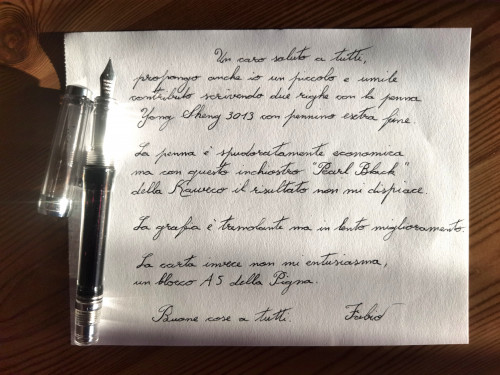 Un caro saluto a tutti,
propongo anche io un piccolo e umile
contributo scrivendo due righe con la penna
Yong Sheng 3013 con pennino extra fine.
La penna è spudoratamente economica
ma con questo inchiostro "Pearl Black"
della Kaweco il risultato non mi dispiace.
La grafia è tremolante ma in lento miglioramento.
La carta invece non mi entusiasma,
un blocco A5 della Pigna.
Buone cose a tutti. Fabio